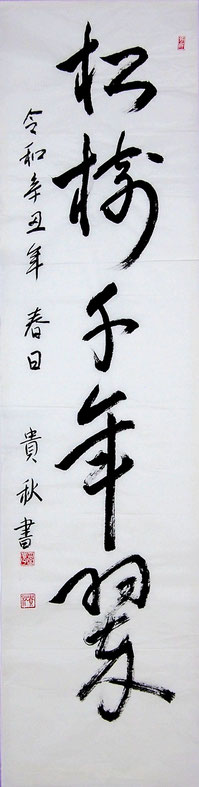 松樹千年翠
令和辛丑年 春日 貴秋書